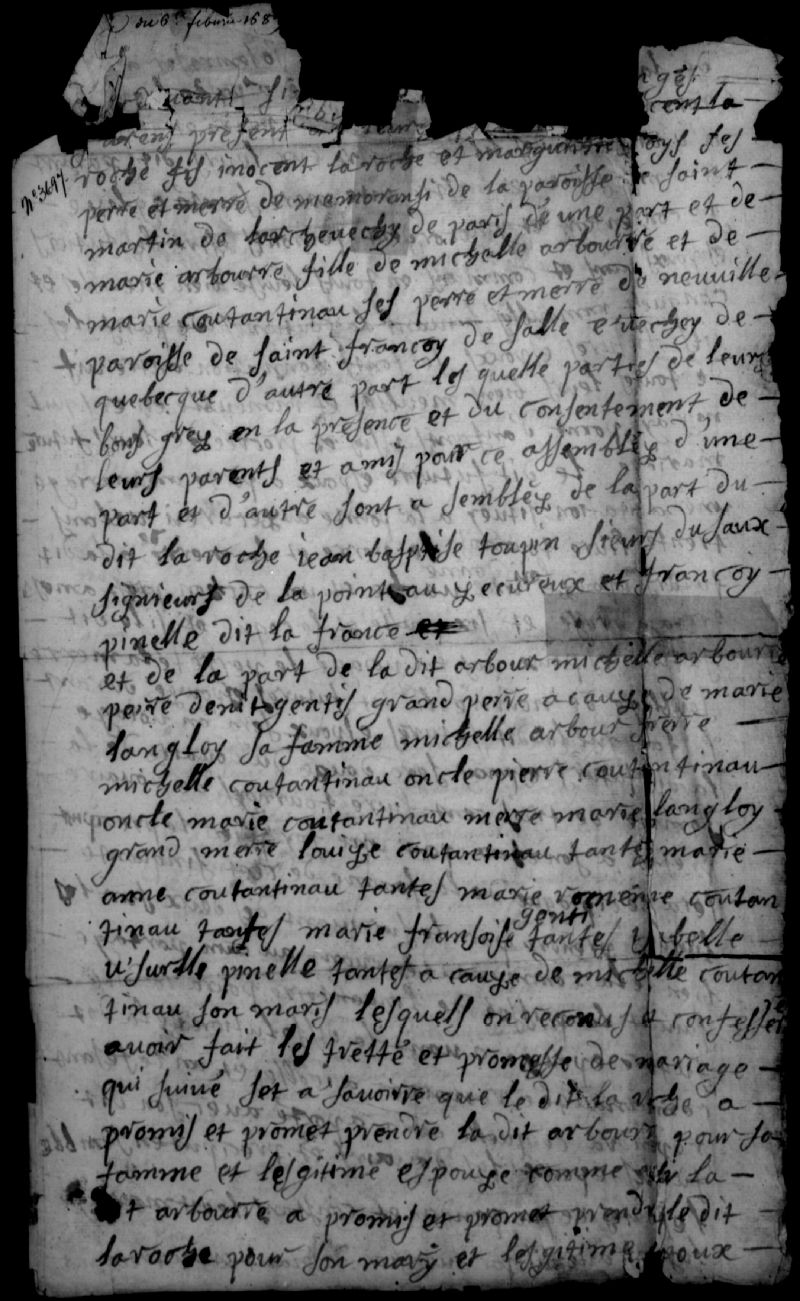 du 6e febvrie 168
cent la
arens présent
No 3697
roche fis inocent la roche et margueritte ses
perre et merre de memoransi de la paroisse de saint
martin do larcheuechy de paris d'une part et de
marie arbourre fille de michelle arbourre et de
marie coutantinau ses perre et merre de neuuille
paroisse de saint francoy de salle euechey de
quebecque d'autre part les quelle parties de leurs
bons grey en la présence et du consentement de
leurs parents et amis pour ce assembléz d'une
part et d'autre sont a sembléz de la part du
dit la roche iean baptise toupin sieurs du saux
signieurs de la point au z ecureux et francoy
pinelle dit la france et
et de la part de la dit arbour michelle arbourre
perre denit gentis grand perre a cauze de marie
langloy sa famme michelle arbour frerre
michelle coutantinau oncle pierre coutantinau
oncle marie coutantinau merre marie langloy
grand merre louize coutantinau tantes marie
anne coutantinau tantes marie coutan
tinau tantes marie fransoise genti tantes izabelle
v'surtle pinelle tantes a cauze de michelle coutan
tinau son maris lesquels on reconus et confesser
avoir fait les tretté et promesse de mariage
qui suiue set a savoirre que le dit la roche a
promis et promet prendre la dit arbourr pour sa
famme et lesgitime espouze comme la
dit arbourre a promis et promet prendre le dit
laroche pour son mary et lesgitime epoux